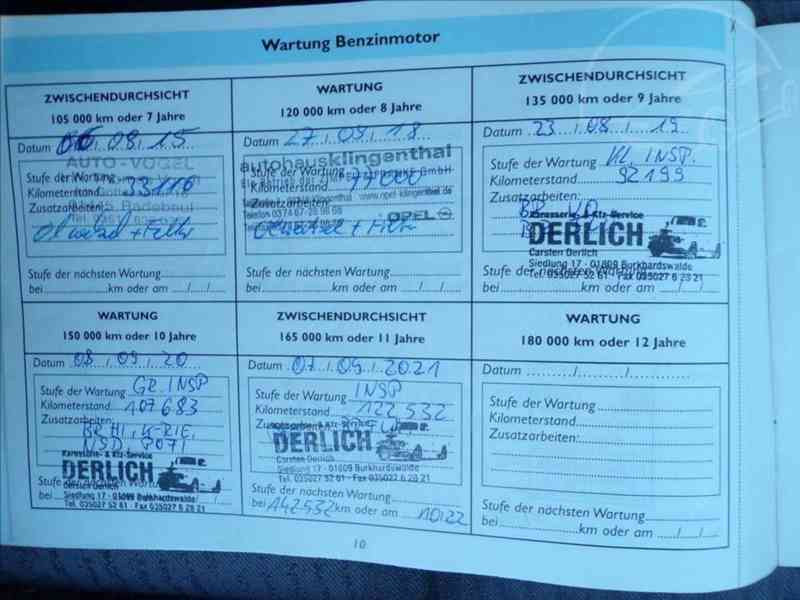 Wartung Benzinmotor
ZWISCHENDURCHSICHT
105 000 km oder 7 Jahre
Datum 06.08.15
AUTO-VOGEL
Stufe der Wartung
Kilometerstand 33116
Zusatzarbeiten:
Ölwechsel + Filter
Stufe der nächsten Wartung
bei km oder am / /
WARTUNG
120 000 km oder 8 Jahre
Datum 27.09.18
autohausklingenthal
Stufe der Wartung GmbH
Kilometerstand 77000
Zusatzarbeiten
Telefon 0374 67-28 98 68
OPEL
Ölwechsel + Filter
Stufe der nächsten Wartung
bei km oder am / /
ZWISCHENDURCHSICHT
135 000 km oder 9 Jahre
Datum 23 / 08 / 19
Stufe der Wartung KL. INSP.
Kilometerstand 92199
Zusatzarbeiten:
Karosserie- & Kfz-Service
DERLICH
Carsten Derlich
Siedlung 17 - 01809 Burkhardswalde
Tel. 035027 52 61 - Fax 035027 6 28 21
Stufe der nächsten Wartung
bei km oder am / /
WARTUNG
150 000 km oder 10 Jahre
Datum 08 / 09 / 20
Stufe der Wartung GR. INSP
Kilometerstand 107683
Zusatzarbeiten:
Karosserie- & Kfz-Service
DERLICH
Carsten Derlich
Stufe der nächsten Wartung
bei Siedlung 17 - 01809 Burkhardswalde
Tel. 035027 52 61 - Fax 035027 6 28 21
ZWISCHENDURCHSICHT
165 000 km oder 11 Jahre
Datum 07 / 09 / 2021
Stufe der Wartung INSP
Kilometerstand 122532
Zusatzarbeiten
Karosserie- & Kfz-Service
DERLICH
Carsten Derlich
Siedlung 17 - 01809 Burkhardswalde
Tel. 035027 52 61 - Fax 035027 6 28 21
Stufe der nächsten Wartung
bei 142532 km oder am 10.22
WARTUNG
180 000 km oder 12 Jahre
Datum / /
Stufe der Wartung
Kilometerstand
Zusatzarbeiten:
Stufe der nächsten Wartung
bei km oder am / /
10